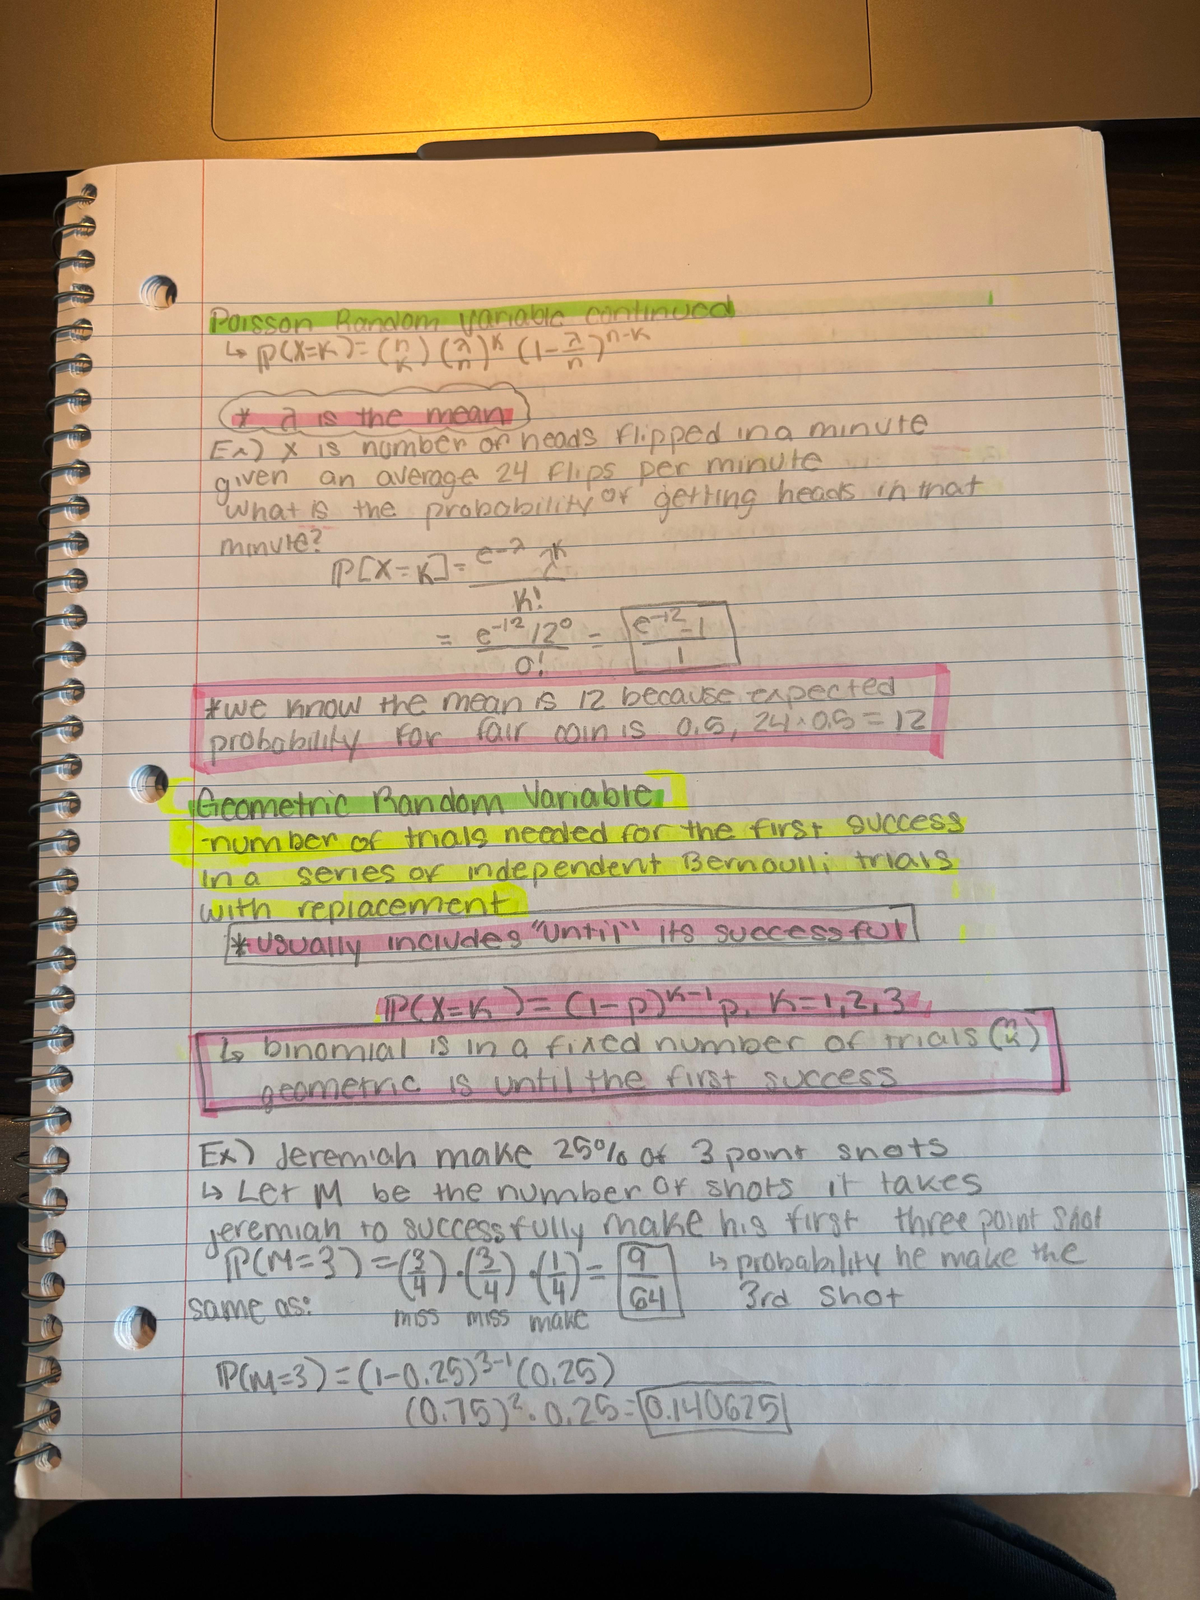 Poisson Random Variable continued
↳ P(X=K)= (n K) (λ/n)^K (1-λ/n)^n-K
* λ is the mean
Ex) X is number of heads flipped in a minute
given an average 24 flips per minute
what is the probability of getting heads in that
minute?
P[X=K]= e^-λ λ^K / K!
= e^-12 12^0 / 0! = e^-12 · 1 / 1
*we know the mean is 12 because expected
probability for fair coin is 0.5, 24·0.5=12
Geometric Random Variable
-number of trials needed for the first success
in a series of independent Bernoulli trials
with replacement
*usually includes "until" its successful
P(X=K)= (1-p)^K-1 p, K=1,2,3
↳ binomial is in a fixed number of trials (n k)
geometric is until the first success
Ex) Jeremiah make 25% of 3 point shots
↳ Let M be the number of shots it takes
jeremiah to successfully make his first three point shot
P(M=3) = (3/4)·(3/4)·(1/4)= 9/64 ↳ probability he make the
same as: miss miss make 3rd shot
P(M=3) = (1-0.25)^3-1 (0.25)
(0.75)^2 · 0.25 = 0.140625